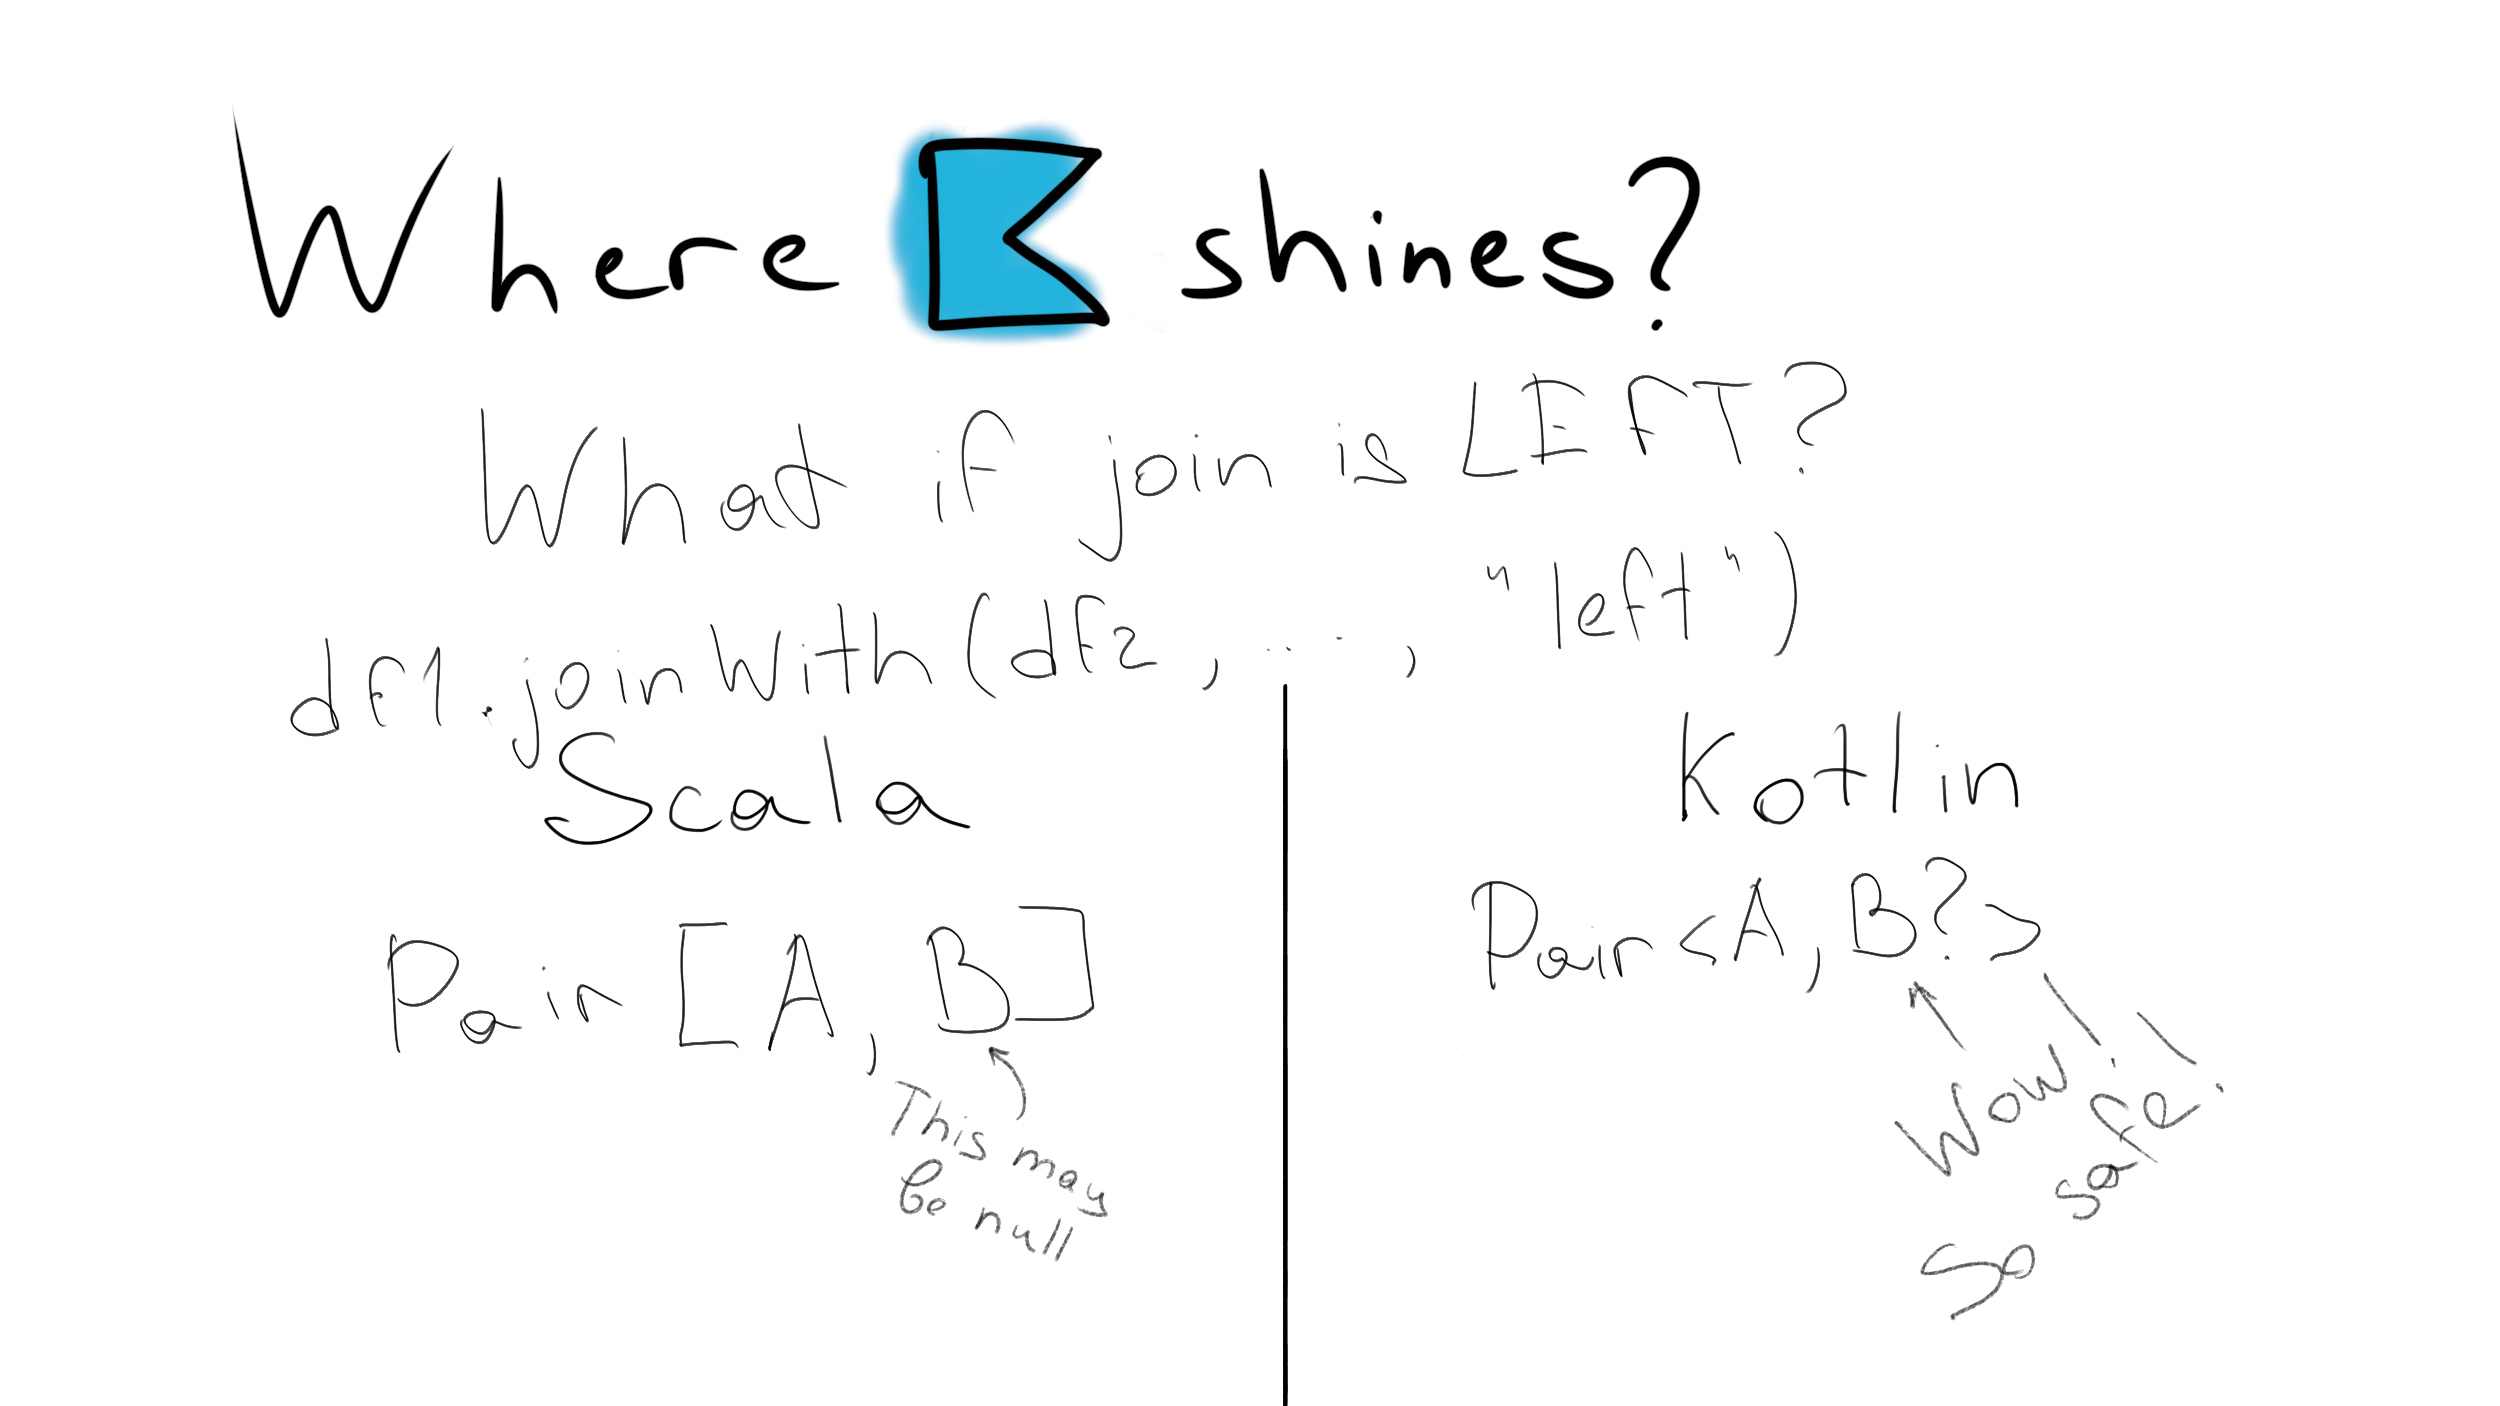 Where K shines?
What if join is LEFT?
df1.joinWith(df2, ..., "left")
Scala
Pair [A, B]
This may
be null
Kotlin
Pair<A, B?>
Wow!
So safe!